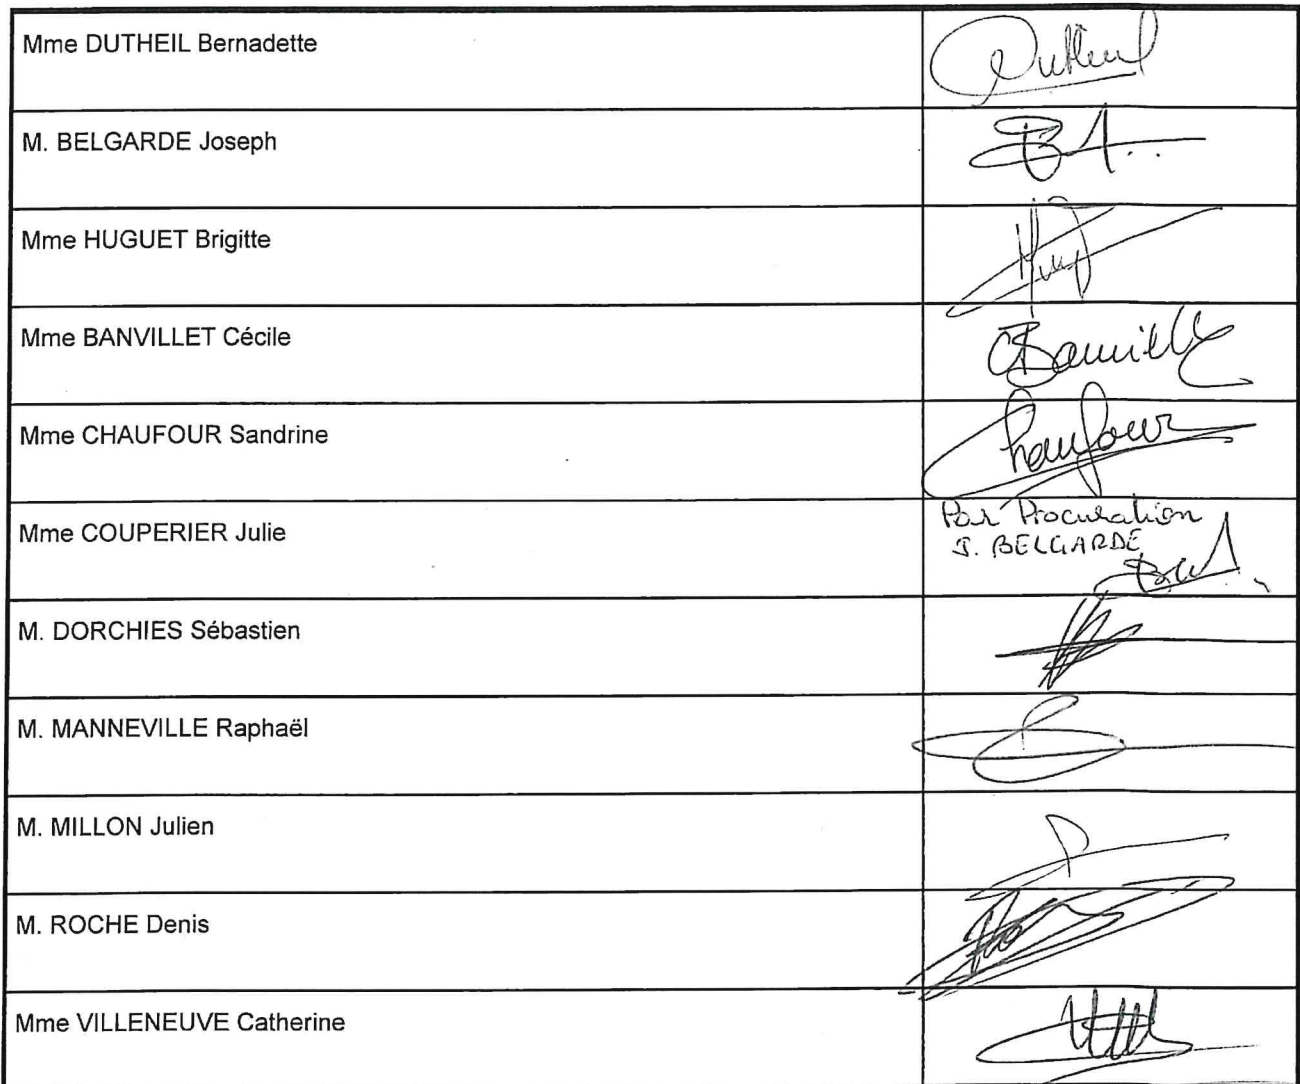 Mme DUTHEIL Bernadette
Dutheil
M. BELGARDE Joseph
Mme HUGUET Brigitte
Mme BANVILLET Cécile
Mme CHAUFOUR Sandrine
Chaufour
Mme COUPERIER Julie
Par Procuration
J. BELGARDE
M. DORCHIES Sébastien
M. MANNEVILLE Raphaël
M. MILLON Julien
M. ROCHE Denis
Mme VILLENEUVE Catherine